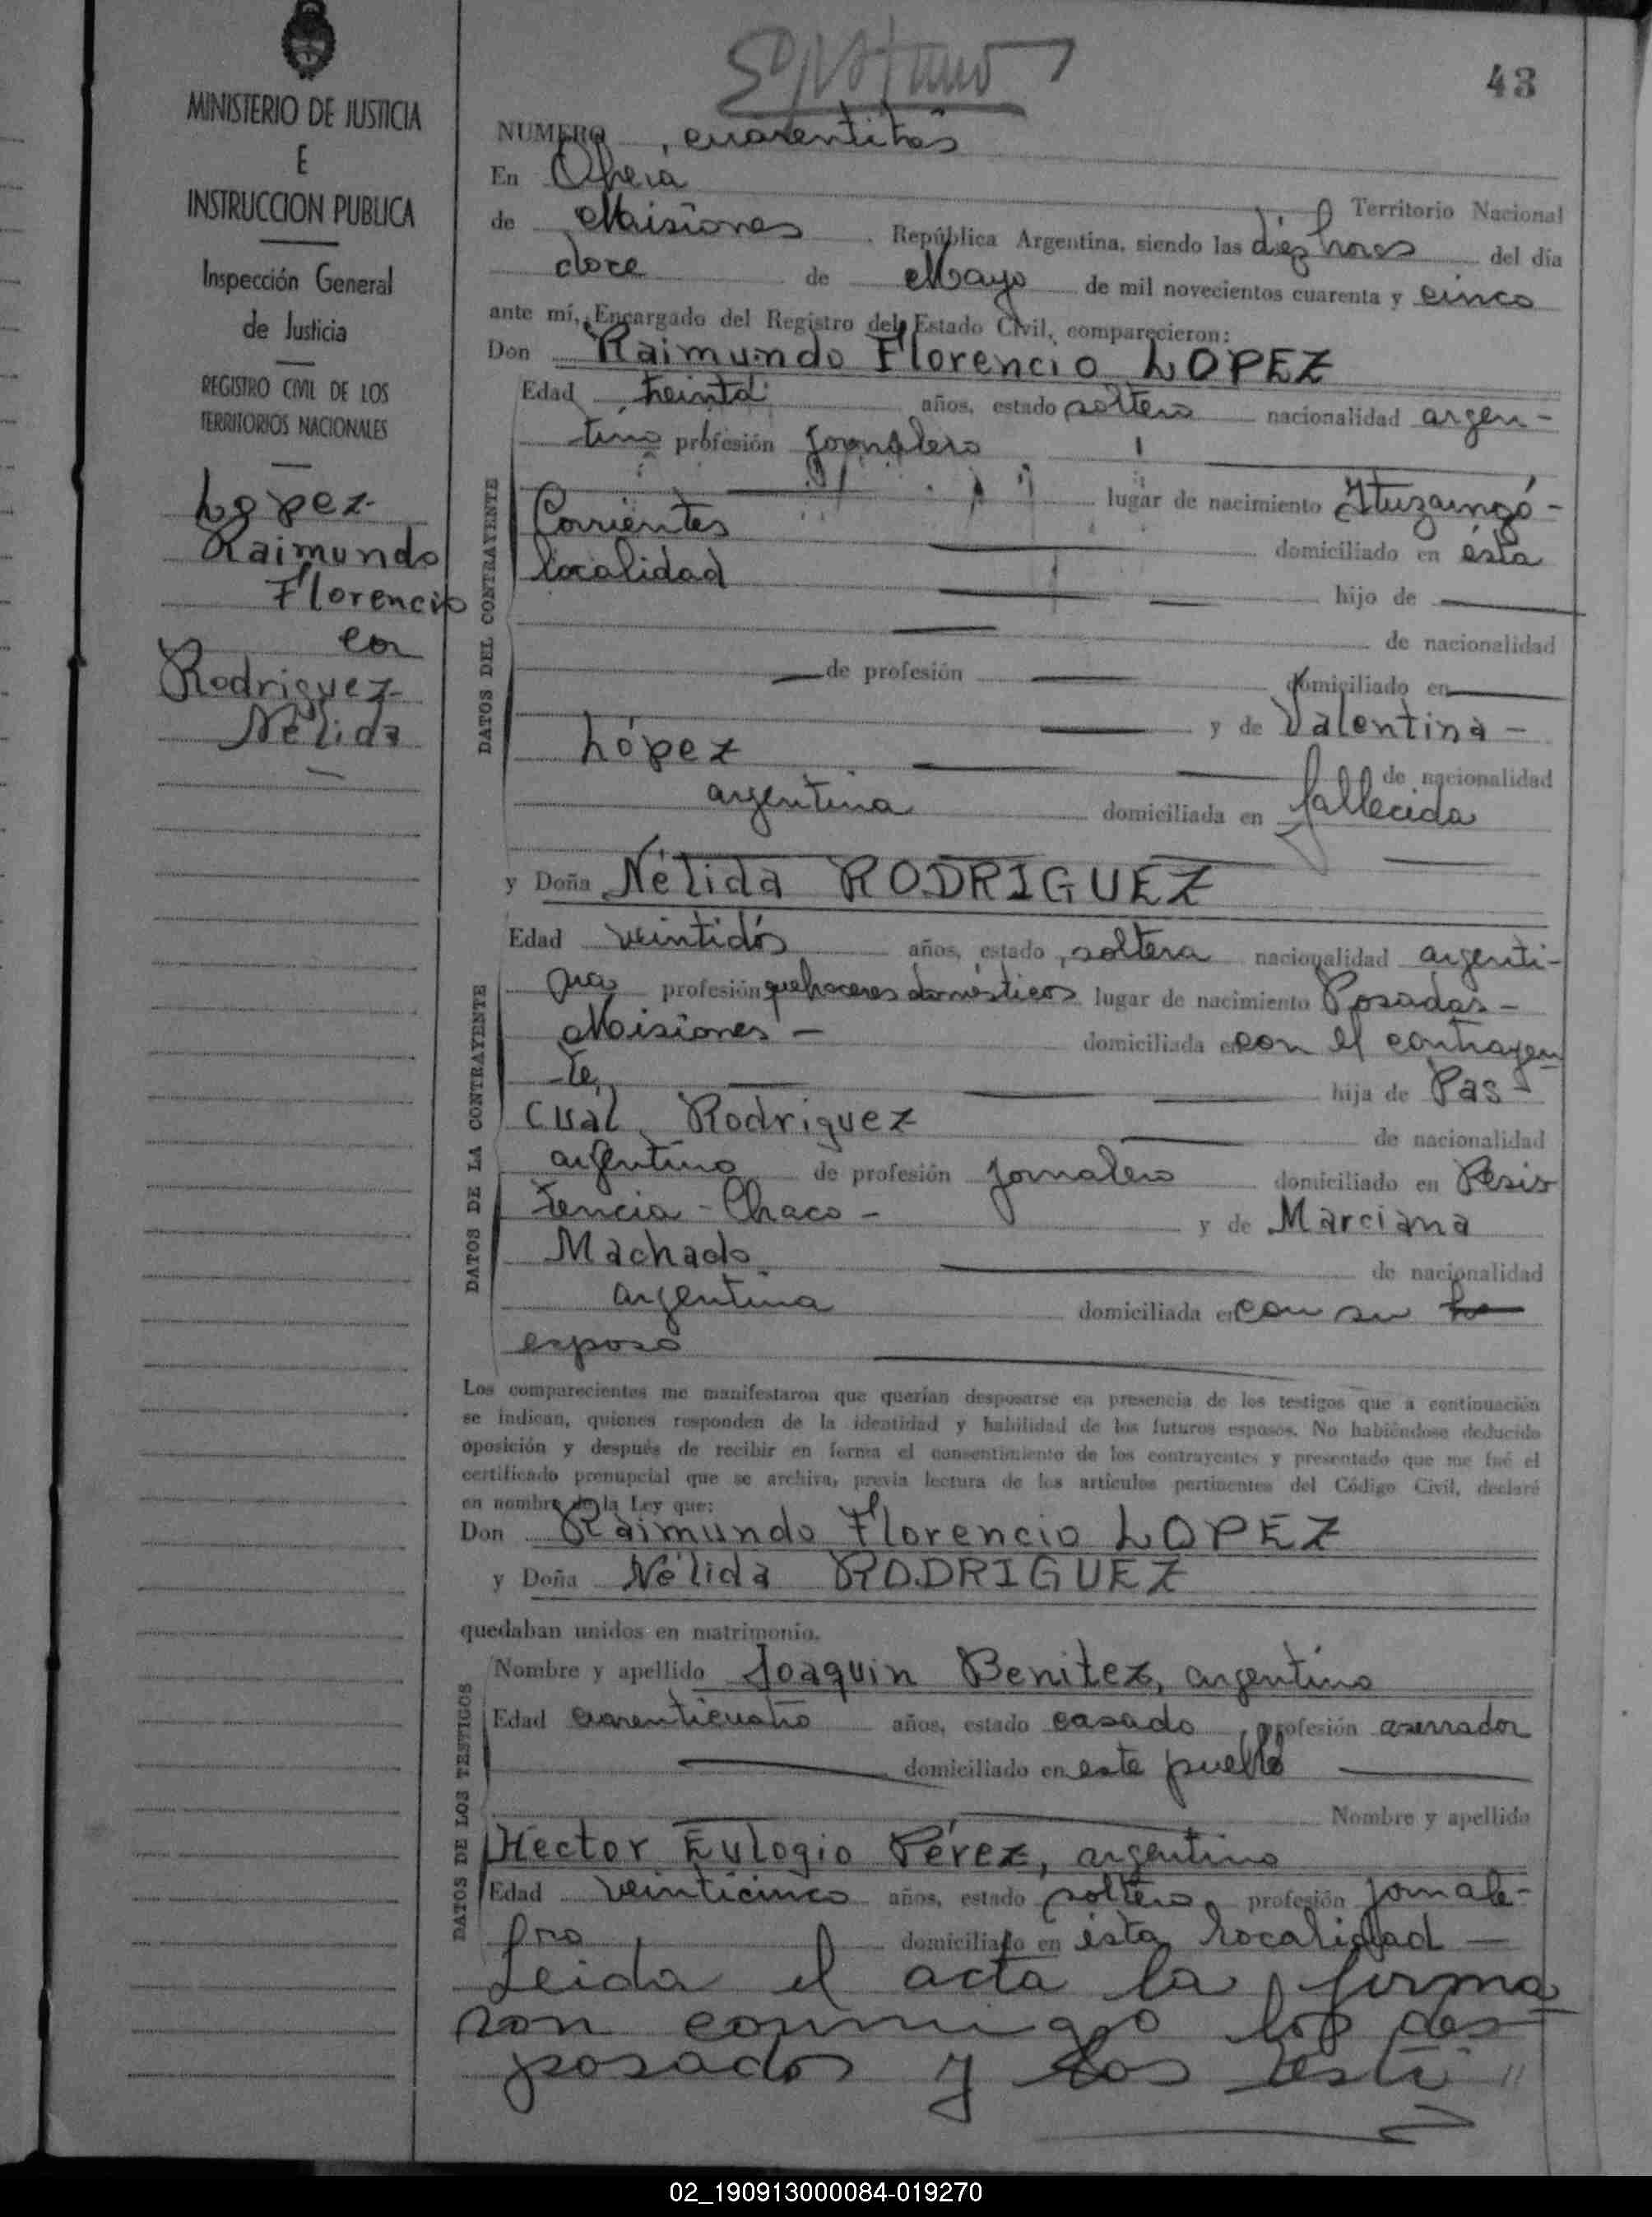 43
MINISTERIO DE JUSTICIA
E
INSTRUCCION PUBLICA
Inspección General
de Justicia
REGISTRO CIVIL DE LOS
TERRITORIOS NACIONALES
Lopez
Raimundo
Florencio
con
Rodriguez
Nélida
NUMERO cuarentitrés
En Oberá Territorio Nacional
de Misiones, República Argentina, siendo las diez horas del día
doce de Mayo de mil novecientos cuarenta y cinco
ante mí, Encargado del Registro del Estado Civil, comparecieron:
Don Raimundo Florencio LOPEZ
DATOS DEL CONTRAYENTE
Edad treinta años, estado soltero nacionalidad argen-
tino profesión jornalero
lugar de nacimiento Ituzaingó-
Corrientes domiciliado en ésta
localidad hijo de
de nacionalidad
de profesión domiciliado en
y de Valentina -
López de nacionalidad
argentina domiciliada en fallecida
y Doña Nélida RODRIGUEZ
DATOS DE LA CONTRAYENTE
Edad veintidós años, estado soltera nacionalidad argenti-
na profesión quehaceres domésticos lugar de nacimiento Posadas-
Misiones - domiciliada en con el contrayen
te hija de Pas-
cual Rodriguez de nacionalidad
argentino de profesión jornalero domiciliado en Resis
tencia - Chaco - y de Marciana
Machado de nacionalidad
argentina domiciliada en con su
esposo
Los comparecientes me manifestaron que querían desposarse en presencia de los testigos que a continuación
se indican, quienes responden de la identidad y habilidad de los futuros esposos. No habiéndose deducido
oposición y después de recibir en forma el consentimiento de los contrayentes y presentado que me fué el
certificado prenupcial que se archiva, previa lectura de los artículos pertinentes del Código Civil, declaré
en nombre de la Ley que:
Don Raimundo Florencio LOPEZ
y Doña Nélida RODRIGUEZ
quedaban unidos en matrimonio.
DATOS DE LOS TESTIGOS
Nombre y apellido Joaquin Benitez, argentino
Edad cuarenticuatro años, estado casado, profesión aserrador
domiciliado en este pueblo
Nombre y apellido
Hector Eulogio Pérez, argentino
Edad veinticinco años, estado soltero, profesión jornale-
ro domiciliado en ésta localidad -
Leida el acta la firma
ron conmigo los des-
posados y los testi //
02_190913000084-019270